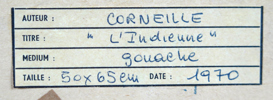 AUTEUR : CORNEILLE
TITRE : " L'Indienne "
MEDIUM : gouache
TAILLE : 50x65cm DATE : 1970